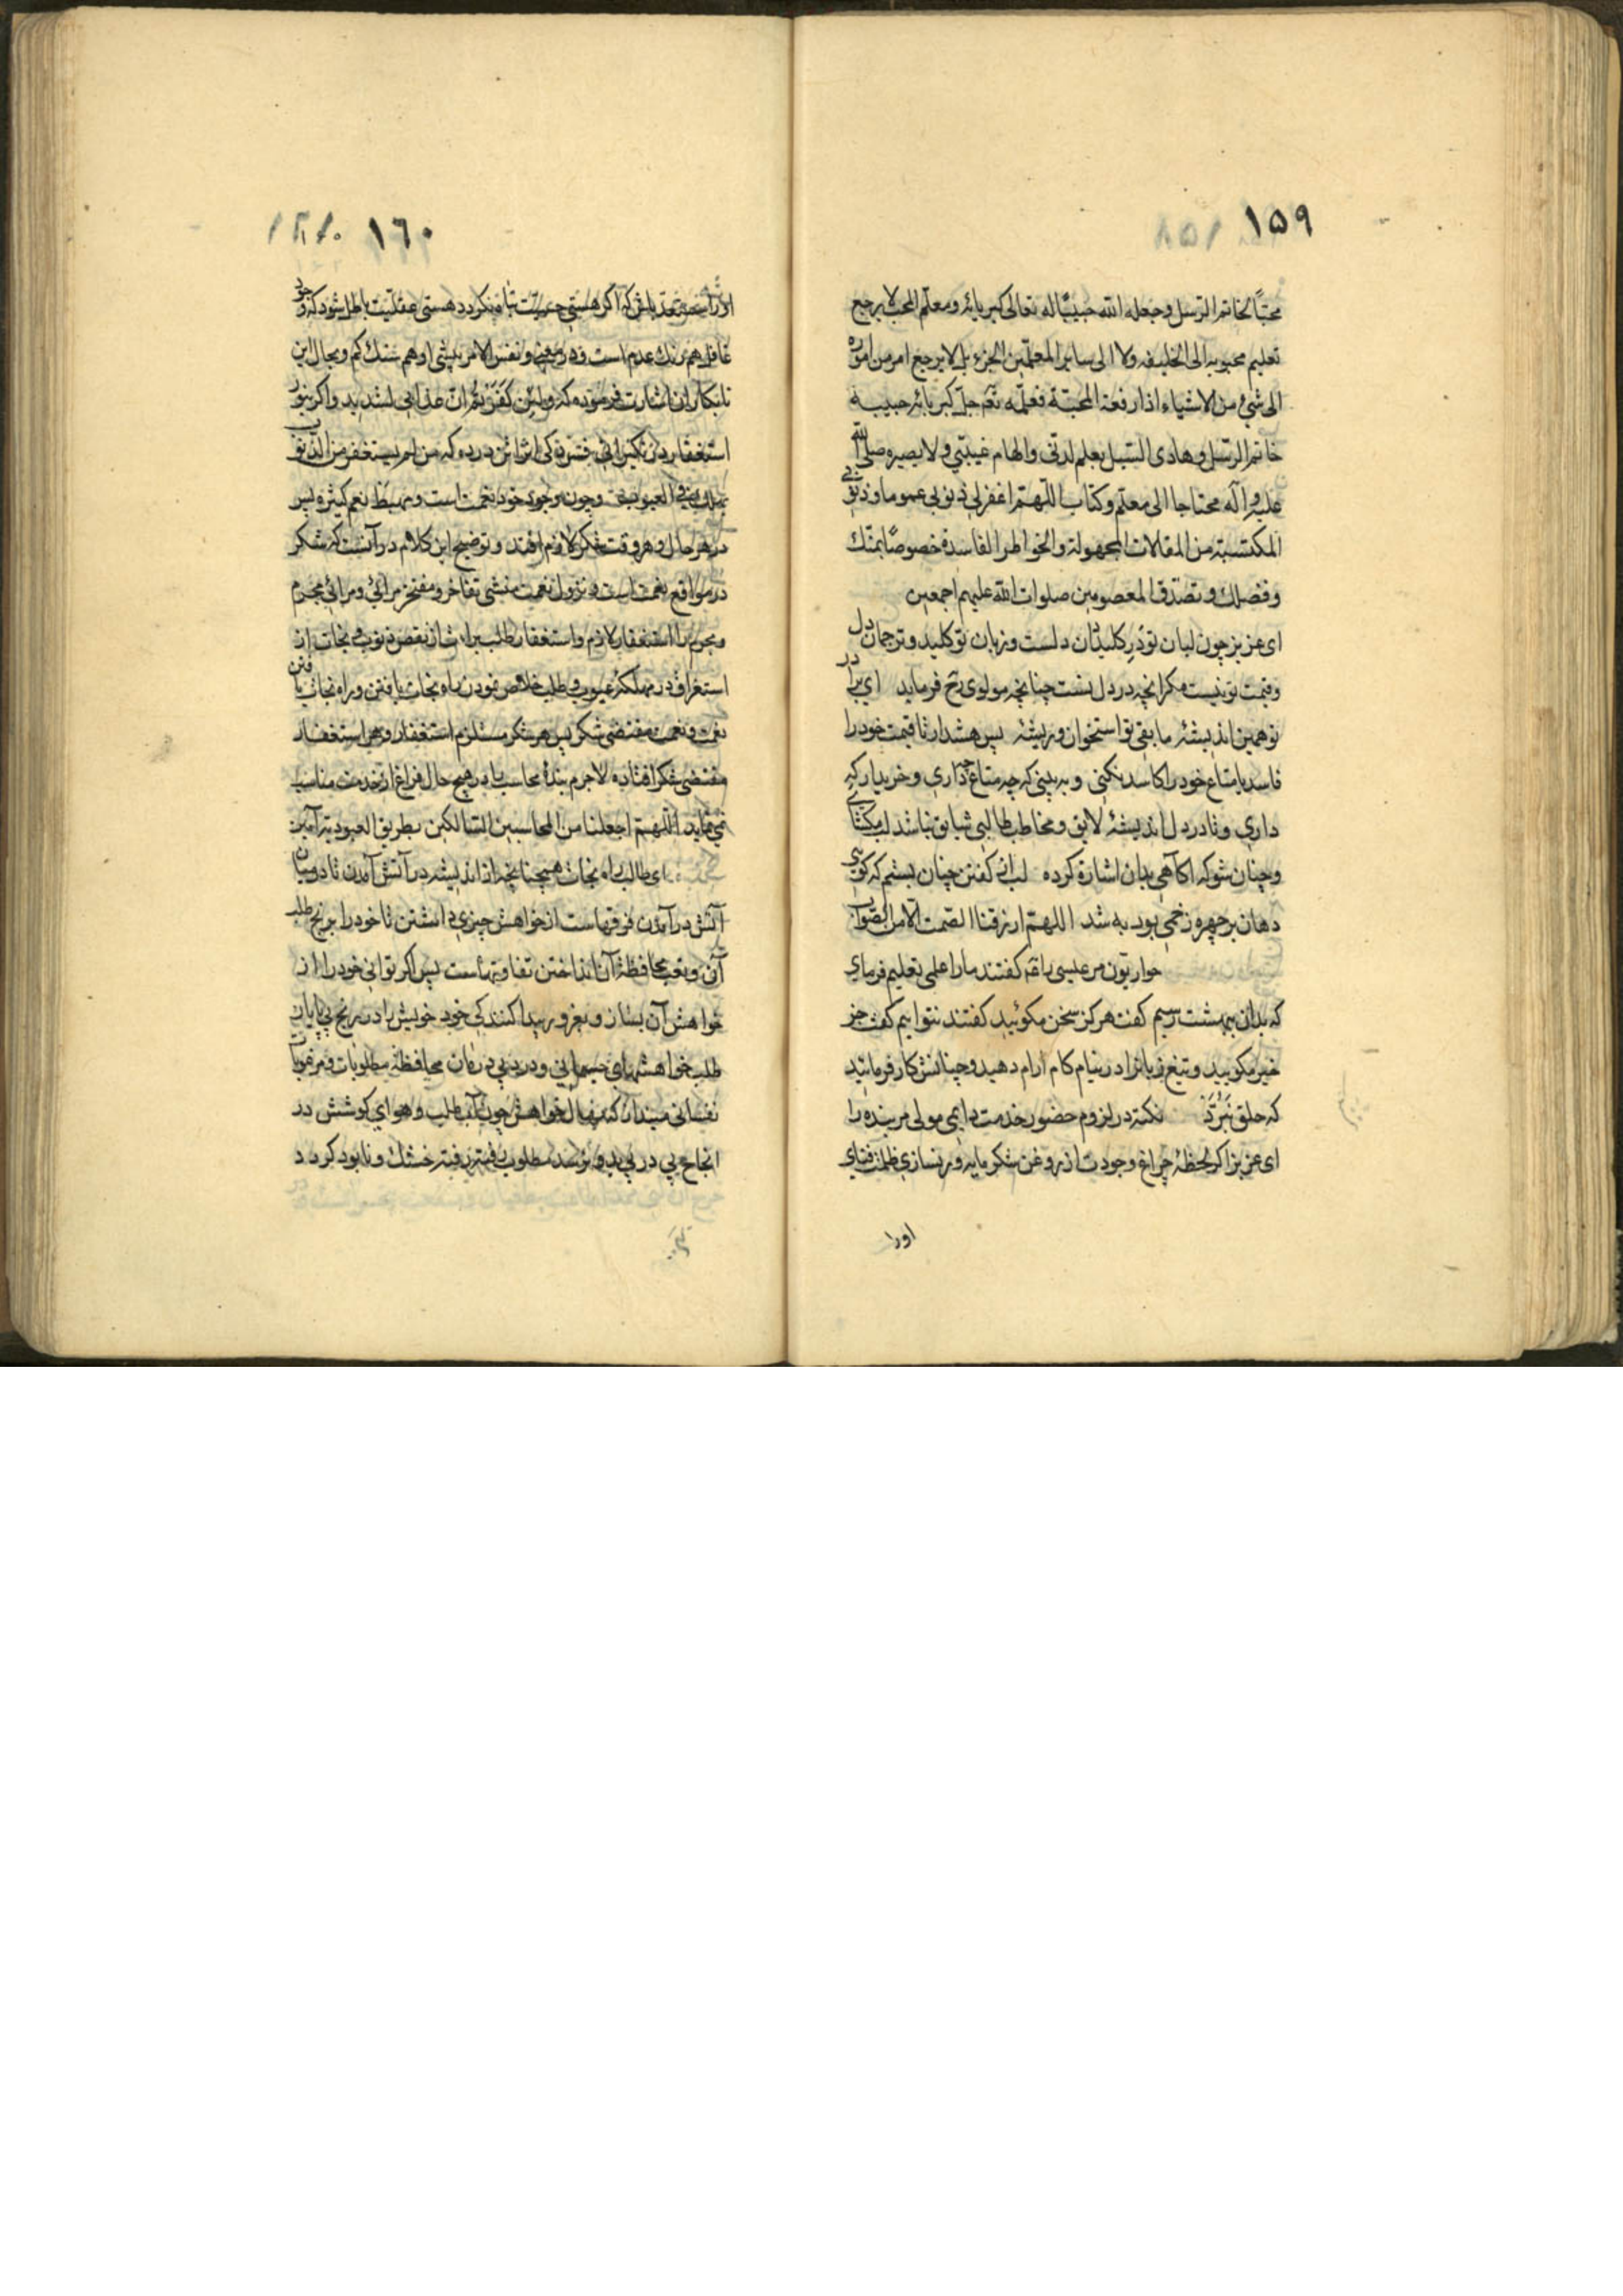 ١٥٩
محبّاً لخاتم الرسل وجعله الله حبيبًا له تعالى كبريائه ومعلّم المحبّ لا يرجع
تعليم محبوبه الى الخليفه ولا الى ساير المعلّمين الجزء بل لا يرجع امر من اموره
الى شئ من الاشياء اذا رفعة المحبّة فعلّمه نعم جلّ كبريائه حبيبه
خاتم الرّسل وهادى السّبيل بعلم لدنّى والهام غيبّى ولا يصير صلى الله
عليه وآله محتاجا الى معلّم وكتاب اللّهمّ اغفرلى ذنوبى عموما وذنوبى
المكتسبة من المقالات المجهولة والخواطر الفاسدة خصوصًا بمنّك
وفضلك وتصدّق المعصومين صلوات الله عليهم اجمعين
اى عزيز چون لبان تو درِ كليدان دلست وزبان تو كليد وترجمان دل
وقيمت تو نيست مكر انچه در دل تست چنانچه مولوى رح فرمايد اى برادر
تو همين انديشهٔ ما بقى تو استخوان وريشهٔ پس هشدار تا قيمت خود را
فاسد يا متاع خود را كاسد نكنى وبه بينى كه چه متاع دارى وخريدار كه
دارى وتا در دل انديشهٔ لايق ومخاطب طالبى شايق نباشد لب مكشاى
وچنان شو كه اكاهى بدان اشاره كرده لب از كفتن چنان بستم كه كوئى
دهان بر چهره زخمى بود به شد اللهمّ ارزقنا الصّمت الّا من الصّواب
حواريّون مر عيسى را كفتند ما را علمى تعليم فرماى
كه بدان ببهشت رسيم كفت هركز سخن مكوئيد كفتند نتوانيم كفت جز
خير مكوييد وتيغ زبانرا در نيام كام ارام دهيد وچنانش كار فرمائيد
كه حلق نَبُرَّد نكته در لزوم حضور خدمت دايمى مولى مر بنده را
اى عزيز اكر لحظهٔ چراغ وجودت از روغن شكر مايه ور نسازى ظلمت فناى
اورا
١٦٠
اورا مستعدّ باش كه اكر هستى حسيّت تباه نكردد هستى عقليّت باطل شود كه وجود
غافل همرنك عدم است ودر معنى ونفس الامر بيشى او هم سنك كم وبحال اين
نابكاران اشارت فرموده كه ولئن كَفَرْتُم انّ عذابى لشديد واكر بنور
استغفار من لم يستغفر من الذّنوب
وچون وجود خود نعمت است ومهبط نعم كثيره پس
در هر حال وهر وقت شكر لازم افتد وتوضيح اين كلام در آنست كه شكر
در مواقع نعمت است ونزول نعمت منشى تفاخر ومفتخر مرائى ومرائى مجرم
ومجرم را استغفار لازم واستغفار طلب براءت از نقص ذنوب ونجات از
استغراق در مهلكهٔ عيوب وطلب خلاص نمودن راه نجات يافتن وراه نجات يافتن
نعمت ونعمت مقتضى شكر پس هر شكر مستلزم استغفار وهر استغفار
مقتضى شكر افتاده لاجرم بندهٔ محاسب را در هيچ حال فراغ از خدمت مناسب
نمى نمايد اللّهمّ اجعلنا من المحاسبين السّالكين بطريق العبوديّة آمين
اى طالب راه نجات همچنانچه از انديشه در آتش آمدن تا در ميان
آتش در آمدن فرقهاست از خواهش چيزى داشتن تا خود را برنج طلب
آن وتعب محافظهٔ آن انداختن تفاوتهاست پس اكر توانى خود را از
خواهش آن بساز كه خود خويش را در رنج بى پايان
طلب خواهشهاى جسمانى ودرد بى درمان محافظهٔ مطلوبات ومرغوبات
نفسانى مينداز كه نهال خواهش چون آب طلب وهواى كوشش در
انجاح پى در پى بدو نرسد مطلوب رفته رفته خشك ونابود كردد